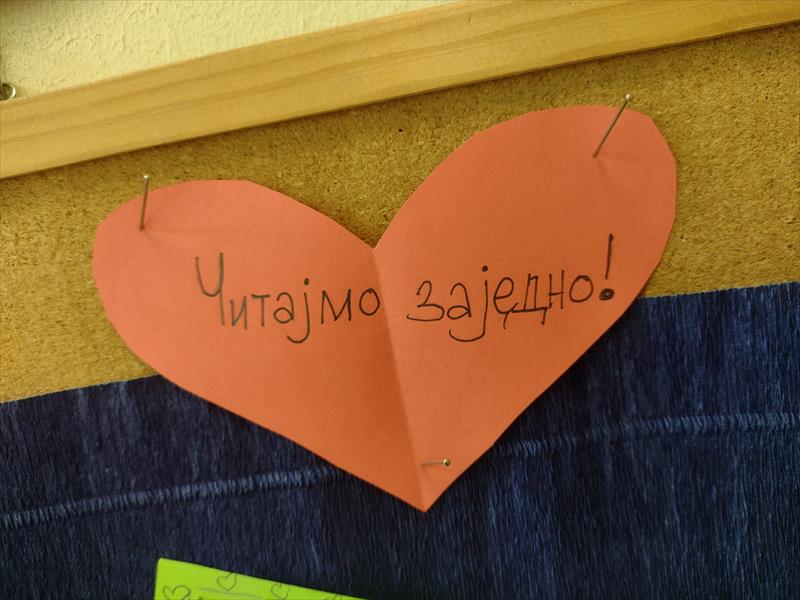 Читајмо заједно!